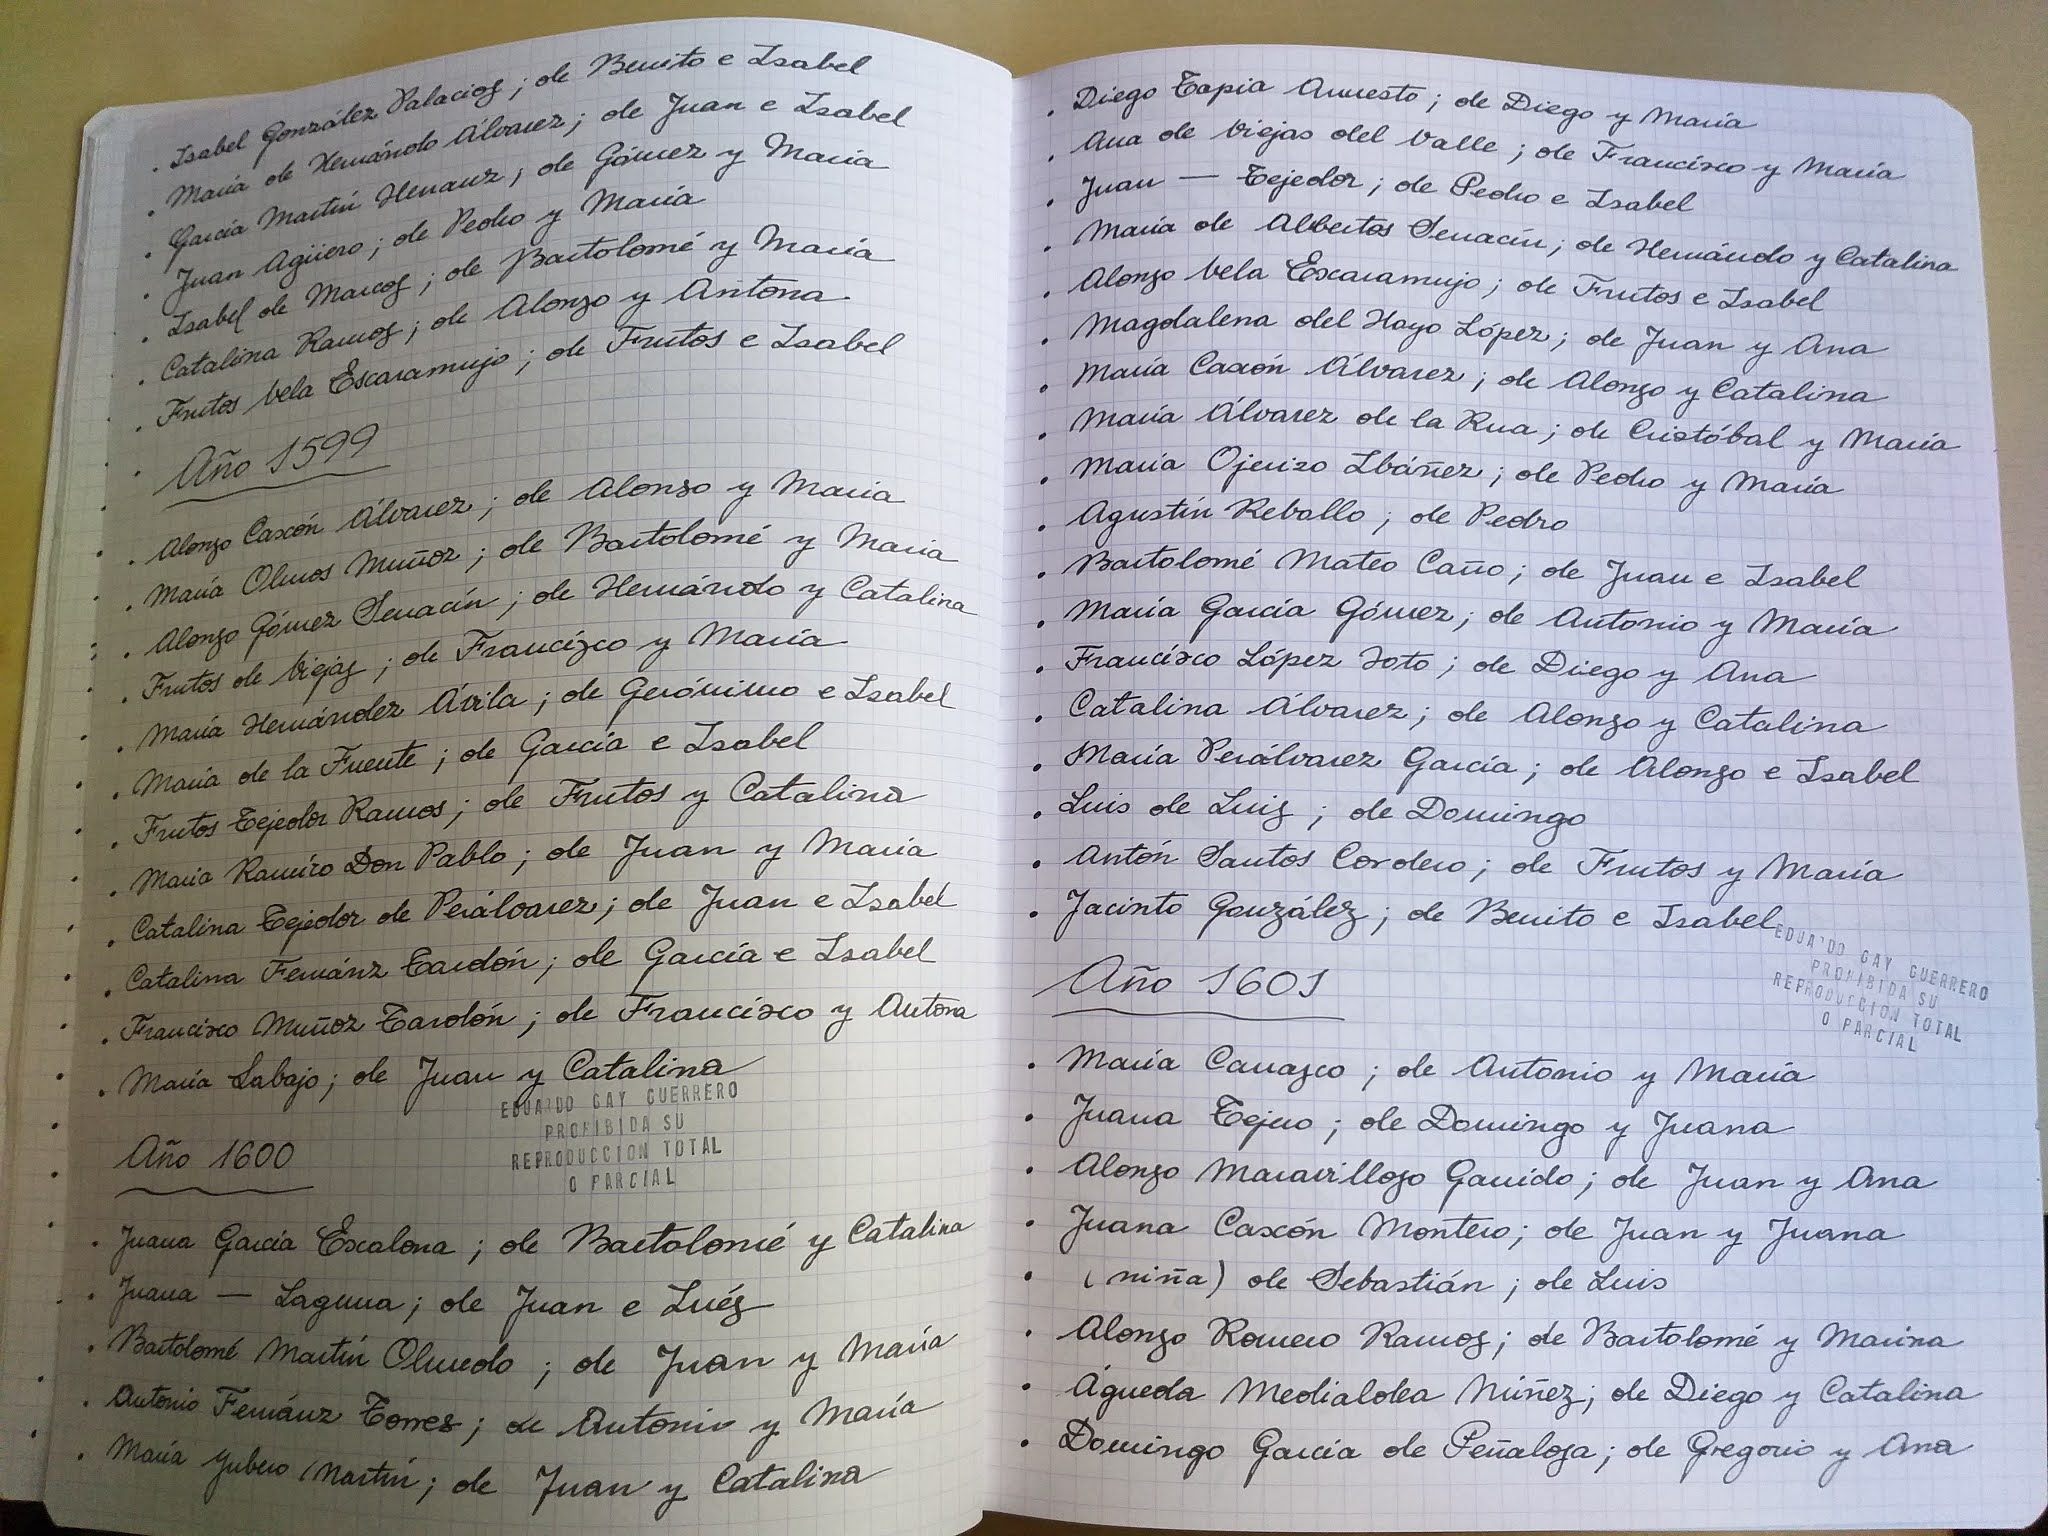 . Isabel González Palacios; de Benito e Isabel
. María de Hernándo Álvarez; de Juan e Isabel
. García Martín Herranz; de Gómez y María
. Juan Agüero; de Pedro y María
. Isabel de Marcos; de Bartolomé y María
. Catalina Ramos; de Alonso y Antona
. Frutos Vela Escaramujo; de Frutos e Isabel
Año 1599
. Alonso Caxón Álvarez; de Alonso y María
. María Olmos Muñoz; de Bartolomé y María
. Alonso Gómez Serracín; de Hernándo y Catalina
. Frutos de Viejas; de Francisco y María
. María Hernández Ávila; de Gerónimo e Isabel
. María de la Fuente; de García e Isabel
. Frutos Tejedor Ramos; de Frutos y Catalina
. María Ramiro Don Pablo; de Juan y María
. Catalina Tejedor de Perálvarez; de Juan e Isabel
. Catalina Fernánz Tardón; de García e Isabel
. Francisco Muñoz Tardón; de Francisco y Antona
. María Labajo; de Juan y Catalina
EDUARDO GAY GUERRERO
PROHIBIDA SU
REPRODUCCION TOTAL
O PARCIAL
Año 1600
. Juana García Escalona; de Bartolomé y Catalina
. Juana — Laguna; de Juan e Inés
. Bartolomé Martín Olmedo; de Juan y María
. Antonio Fernánz Torres; de Antonio y María
. María Yubero Martín; de Juan y Catalina
. Diego Tapia Amresto; de Diego y María
. Ana de Viejas del Valle; de Francisco y María
. Juan — Tejedor; de Pedro e Isabel
. María de Albertos Serracín; de Hernándo y Catalina
. Alonso Vela Escaramujo; de Frutos e Isabel
. Magdalena del Hoyo López; de Juan y Ana
. María Caxón Álvarez; de Alonso y Catalina
. María Álvarez de la Rua; de Cristóbal y María
. María Ojerizo Ibáñez; de Pedro y María
. Agustín Reballo; de Pedro
. Bartolomé Mateo Caño; de Juan e Isabel
. María García Gómez; de Antonio y María
. Francisco López Soto; de Diego y Ana
. Catalina Álvarez; de Alonso y Catalina
. María Perálvarez García; de Alonso e Isabel
. Luis de Luis; de Domingo
. Antón Santos Cordero; de Frutos y María
. Jacinto González; de Benito e Isabel
EDUARDO GAY GUERRERO
PROHIBIDA SU
REPRODUCCION TOTAL
O PARCIAL
Año 1601
. María Carrasco; de Antonio y María
. Juana Tejero; de Domingo y Juana
. Alonso Maravilloso Garrido; de Juan y Ana
. Juana Caxón Montero; de Juan y Juana
. (niña) de Sebastián; de Luis
. Alonso Romero Ramos; de Bartolomé y Marina
. Águeda Medialdea Núñez; de Diego y Catalina
. Domingo García de Peñalosa; de Gregorio y Ana